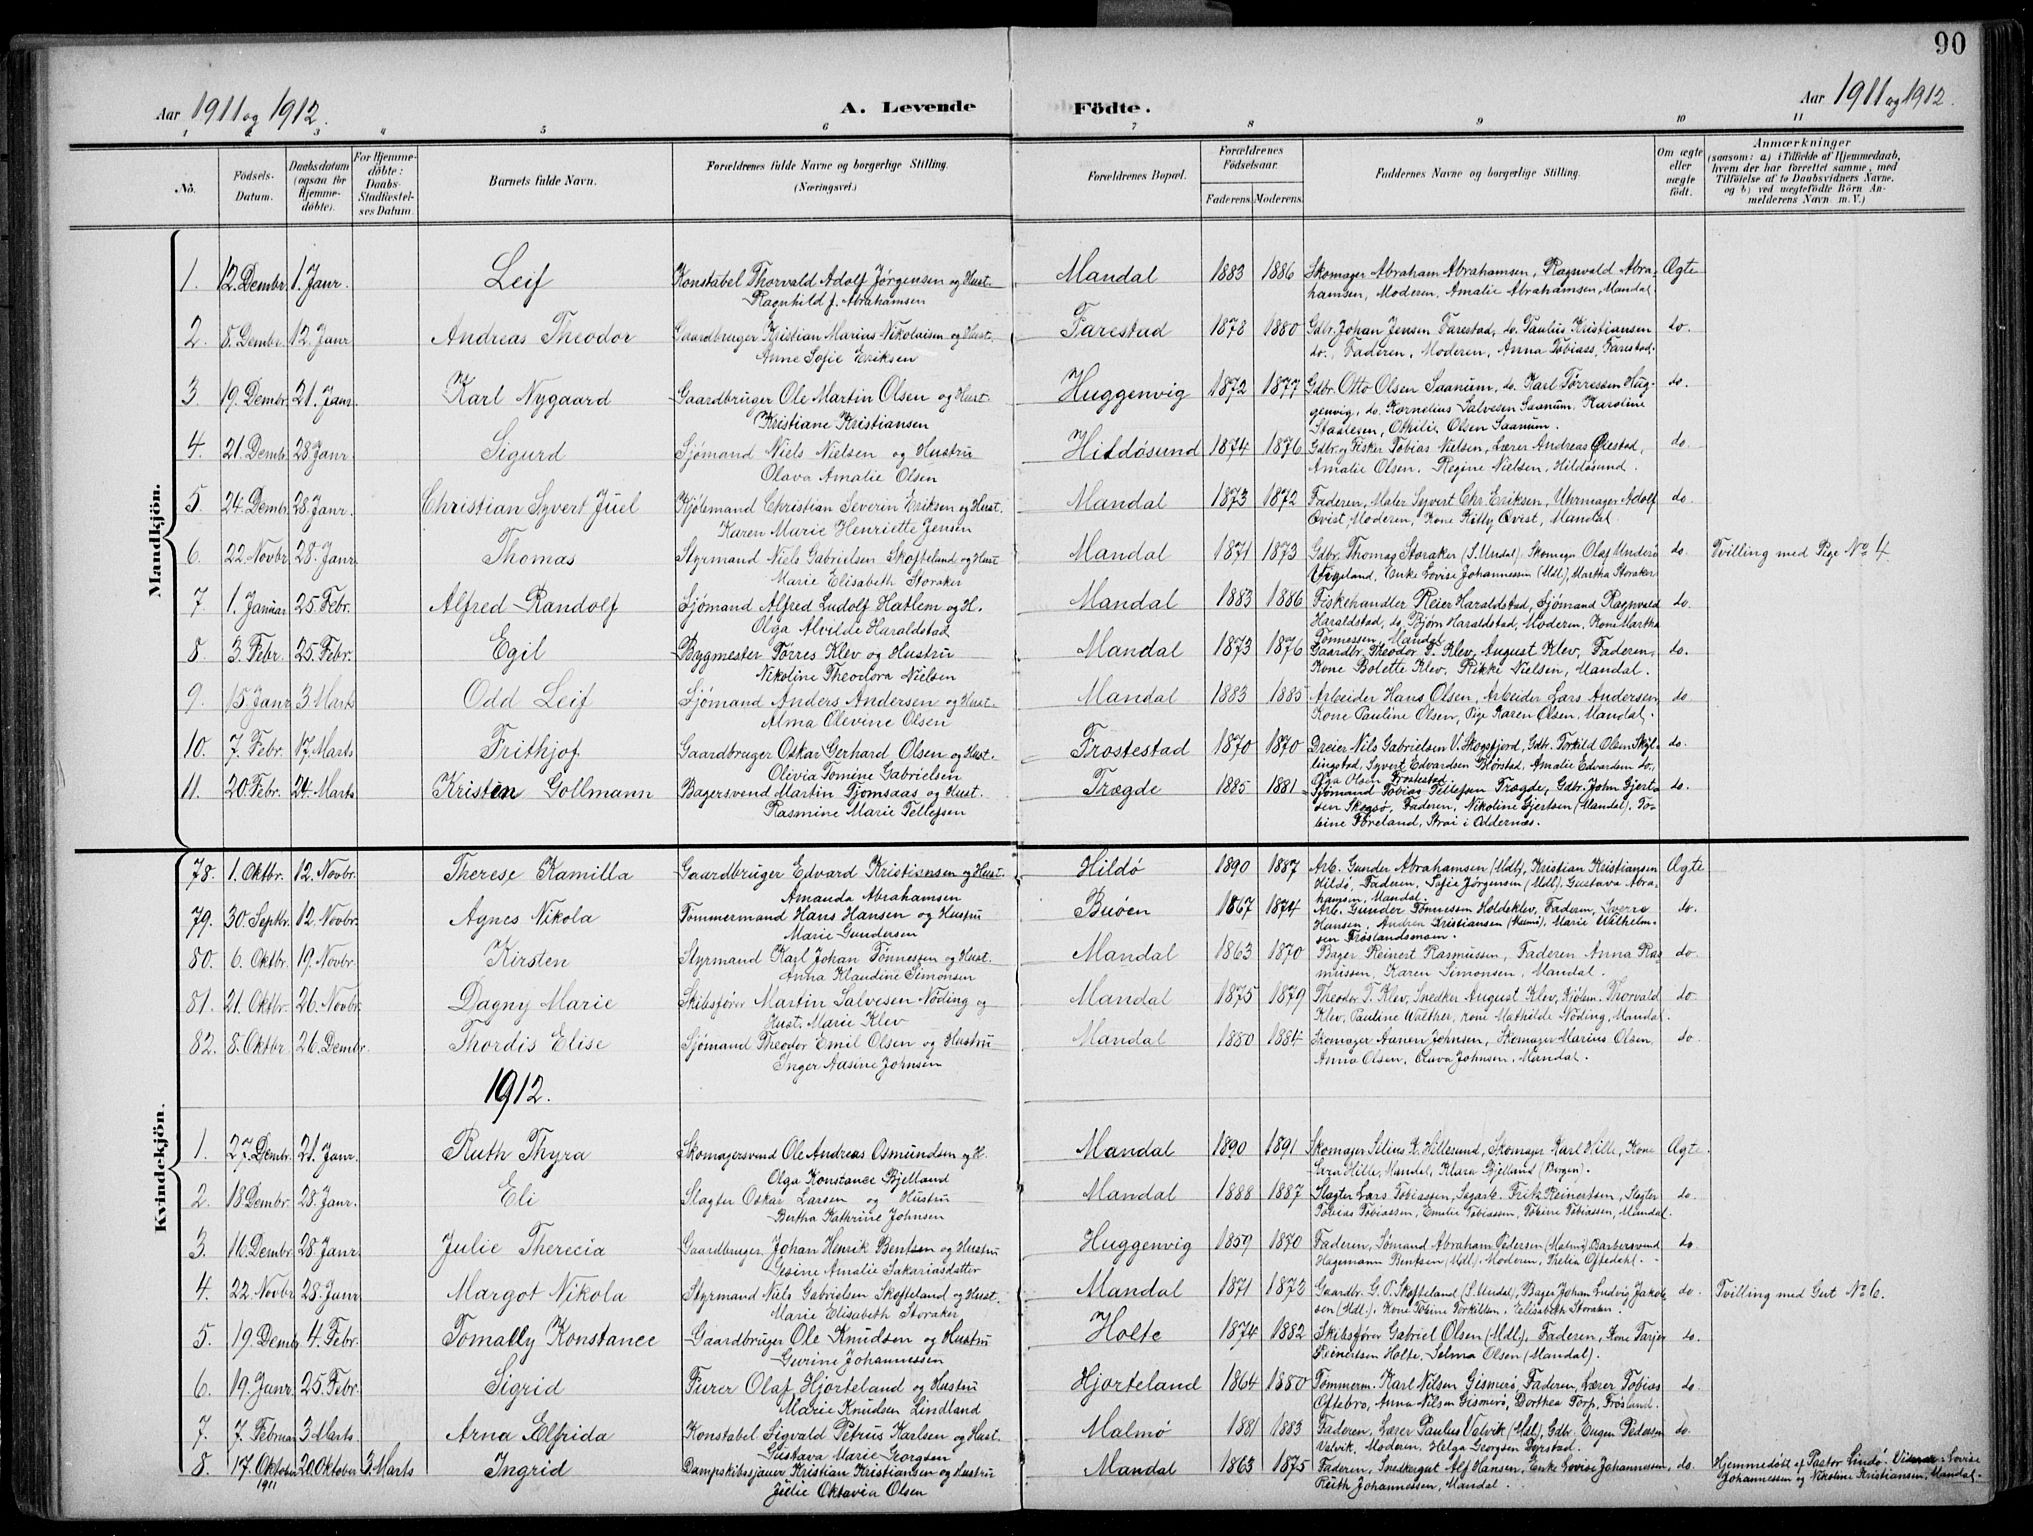 90
Aar 1911 og 1912. A. Levende Födte. Aar 1911 og 1912.
1 2 3 4 5 6 7 8 9 10 11
No. Födsels-Datum. Daabsdatum (ogsaa for Hjemme-döbte). For Hjemme-döbte: Daabs-Stadfæstel-ses Datum. Barnets fulde Navn. Forældrenes fulde Navne og borgerlige Stilling. (Næringsvei.) Forældrenes Bopæl. Forældrenes Födselsaar. Faderens. Moderens. Faddernes Navne og borgerlige Stilling. Om ægte eller uægte födt. Anmærkninger (saasom: a) i Tilfælde af Hjemmedaab, hvem der har forrettet samme, med Tilföielse af to Daabsvidners Navne, og b) ved uægtefödte Börn An-melderens Navn m. V.)
Mandkjön.
1. 12. Dembr. 1. Janr. Leif Konstabel Thorvald Adolf Jørgensen og Hust. Mandal 1883 1886 Skomager Abraham Abrahamsen, Ragnvald Abra- Ægte
Ragnhild J. Abrahamsen hamsen, Moderen, Amalie Abrahamsen, Mandal.
2. 8. Dembr. 12. Janr Andreas Theodor Gaardbruger Kristian Marius Nikolaisen og Hust. Farestad 1878 1880 Gdbr. Johan Jensen Farestad, do. Paulus Kristiansen do.
Anne Sofie Eriksen do., Faderen, Moderen, Anna Tobiass, Farestad.
3 19. Dembr. 21. Janr. Karl Nygaard Gaardbruger Ole Martin Olsen og Hust. Huggenvig 1872 1877 Gdbr. Otto Olsen Saanum, do. Karl Tørressen Hug- do.
Kristiane Kristiansen genvig, do. Kornelius Salvesen Saanum. Karoline
Staalesen, Othilie Olsen Saanum.
4. 21. Dembr. 28. Janr. Sigurd Sjömand Niels Nielsen og Hustru Hildösund 1874 1876 Gdbr. og Fisker Tobias Nielsen, Lærer Andreas Øiestad do.
Olava Amalie Olsen Amalie Olsen. Regine Nielsen, Hildösund.
5 24. Dembr. 28. Janr. Christian Syvert Juel Kjölemand Christian Severin Eriksen og Hust. Mandal 1873 1872 Faderen, Maler Syvert Chr. Eriksen, Uhrmager Adolf do.
Karen Marie Henriette Jensen Qvist, Moderen, Kone Kitty Qvist, Mandal.
6. 22. Novbr. 28. Janr Thomas Styrmand Niels Gabrielsen Skofteland og Hust Mandal 1871 1873 Gdbr. Thomas Storaker (S. Undal). Skomagr. Olaf Underö do. Tvilling med Pige No 4
Marie Elisabeth Storaker Vigeland, Enke Lovise Johannessen (Mdl.), Martha Storaker
7. 1. Januar 25. Febr. Alfred Randolf Sjömand Alfred Ludolf Hatlem og H. Mandal 1883 1886 Fiskehandler Reier Haraldstad, Sjömand Ragnvald do.
Olga Alvilde Haraldstad Haraldstad, do. Bjørn Haraldstad, Moderen, Kone Martha
Tönnessen, Mandal
8. 3. Febr. 25. Febr. Egil Bygmester Tørres Klev og Hustru Mandal 1873 1876 Gaardbr. Theodor T. Klev, August Klev, Faderen, do.
Nikoline Theodora Nielsen Kone Bolette Klev, Rikke Nielsen, Mandal.
9. 15. Janr 3. Marts Odd Leif Sjömand Anders Andersen og Hust. Mandal 1883 1885 Arbeider Hans Olsen, Arbeider Lars Andersen, do
Alma Olevine Olsen Kone Pauline Olsen, Pige Karen Olsen. Mandal.
10. 7. Febr. 17. Marts Frithjof Gaardbruger Oskar Gerhard Olsen og Hust. Frostestad 1870 1870 Dreier Nils Gabrielsen V. Skogsfjord, Gdbr. Torkild Olsen Skjl- do.
Olivia Tomine Gabrielsen lingstad, Syvert Edvardsen Thörstad, Amalie Edvardsen do.,
Olga Olsen Frostestad.
11. 20. Febr. 24. Marts Kristen Gollmann Bagersvend Martin Fjomsaas og Hust. Trægde 1885 1881 Sjömand Tobias Tellefsen Trægde, Gdbr. John Gjert- do.
Rasmine Marie Tellefsen sen Skogsö, Faderen, Nikoline Gjertsen (Mandal). To-
bine Föreland, Strai i Oddernæs.
Kvindekjön.
78. 1. Oktbr. 12. Novbr. Therese Kamilla Gaardbruger Edvard Kristiansen og Hust. Hildö 1890 1887 Arb. Gunder Abrahamsen (Mdl). Kristian Kristiansen Ægte
Amanda Abrahamsen Hildö, Faderen, Sofie Jørgensen (Mdl.). Gustava Abra-
hamsen, Mandal.
79. 30. Septbr. 12. Novbr. Agnes Nikola Tømmermand Hans Hansen og Hustru Buöen 1867 1874 Arb. Gunder Tönnessen Holdeklev, Faderen, Sverre do.
Marie Gundersen Hansen, Andrea Kristiansen (Malmö), Marie Wilhelm-
sen Fröslandsmoen.
80. 6. Oktbr. 19. Novbr. Kirsten Styrmand Karl Johan Tönnessen og Hust. Mandal 1863 1870 Bager Reinert Rasmussen, Faderen Anna Ras do.
Anna Klaudine Simonsen mussen, Karen Simonsen, Mandal.
81. 21. Oktbr. 26. Novbr. Dagny Marie Skibsförer Martin Salvesen Nöding og Mandal 1875 1879 Theodor T. Klev, Snedker August Klev, Kjölem. Thorvald do
Hust. Marie Klev Klev, Pauline Walther, Kone Mathilde Nöding, Mandal.
82. 8. Oktbr 26. Dembr. Thordis Elise Sjömand Theodor Emil Olsen og Hustru Mandal 1880 1884 Skomager Aanen Johnsen, Skomager Marius Olsen, do.
Inger Aasine Johnsen Anna Olsen, Olava Johnsen, Mandal.
1912.
1. 27. Dembr. 21. Janr. Ruth Thyra Skomagersvend Ole Andreas Osmundsen og H. Mandal 1890 1891 Skomager Silius K. Hillesund, Skomager Karl Hille, Kone Ægte.
Olga Konstance Bjelland Sara Hille, Mandal, Klara Bjelland (Bergen).
2. 18. Dembr. 28. Janr. Eli Slagter Oskar Larsen og Hustru Mandal 1888 1887 Slagter Lars Tobiassen, Sagarb. Fritz Reinertsen, Slagter do.
Bertha Kathrine Johnsen Tobias Tobiassen, Emelie Tobiassen, Tobine Tobiassen, Mandal.
3. 11. Dembr. 28. Janr. Julie Therecia Gaardbruger Johan Henrik Bentsen og Hustru Huggenvig 1859 1870 Faderen, Sömand Abraham Pedersen (Malmö) Barbersvend do.
Gesine Amalie Sakariasdatter Hagemann Bentsen (Mdl.). Moderen, Thelia Oftedahl.
4. 22. Novbr 28. Janr. Margot Nikola Styrmand Niels Gabrielsen Skofteland og Hust. Mandal 1871 1873 Gaardbr. G. P. Skofteland (S. Undal), Bager Johan Ludvig Jakob- do. Tvilling med Gut No 6.
Marie Elisabeth Storaker sen (Mdl.). Kone Tobine Torkildsen, Elisabeth Storaker.
5. 19. Dembr 4. Febr. Tomally Konstance Gaardbruger Ole Knudsen og Hustru Holte 1874 1882 Skibsförer Gabriel Olsen (Mdl.), Faderen, Kone Tarjer do.
Gurine Johannessen Reinertsen Holte, Selma Olsen (Mandal).
6. 19. Janr. 25. Febr. Sigrid Furer Olaf Hjorteland og Hustru Hjorteland 1864 1880 Tömmerm. Karl Nilsen Gismerö, Faderen, Lærer Tobias do.
Marie Knudsen Lindland Oftebro, Anna Nilsen Gismerö, Dorthea Torp, Frösland.
7. 7. Februar 3. Marts. Arna Elfrida Konstabel Sigvald Petrus Karlsen og Hust. Malmö 1881 1883 Faderen, Lærer Paulus Valvik (Mdl.), Gdbr. Eugen Pedersen do.
Gustava Marie Georgsen Valvik, Moderen, Helga Georgsen Dyrstad.
8. 17. Oktober 20. Oktober 3. Marts Ingrid Dampskibssjauer Kristian Kristiansen og Hustru Mandal 1863 1875 Faderen, Snedkergut Alf Hansen, Enke Lovise Johannessen, do. Hjemmedöbt af Pastor Lindö. Vidner: Lovise
1911 Julie Oktavia Olsen Ruth Johannessen, Mandal. Johannessen og Nikoline Kristiansen, Mandal.